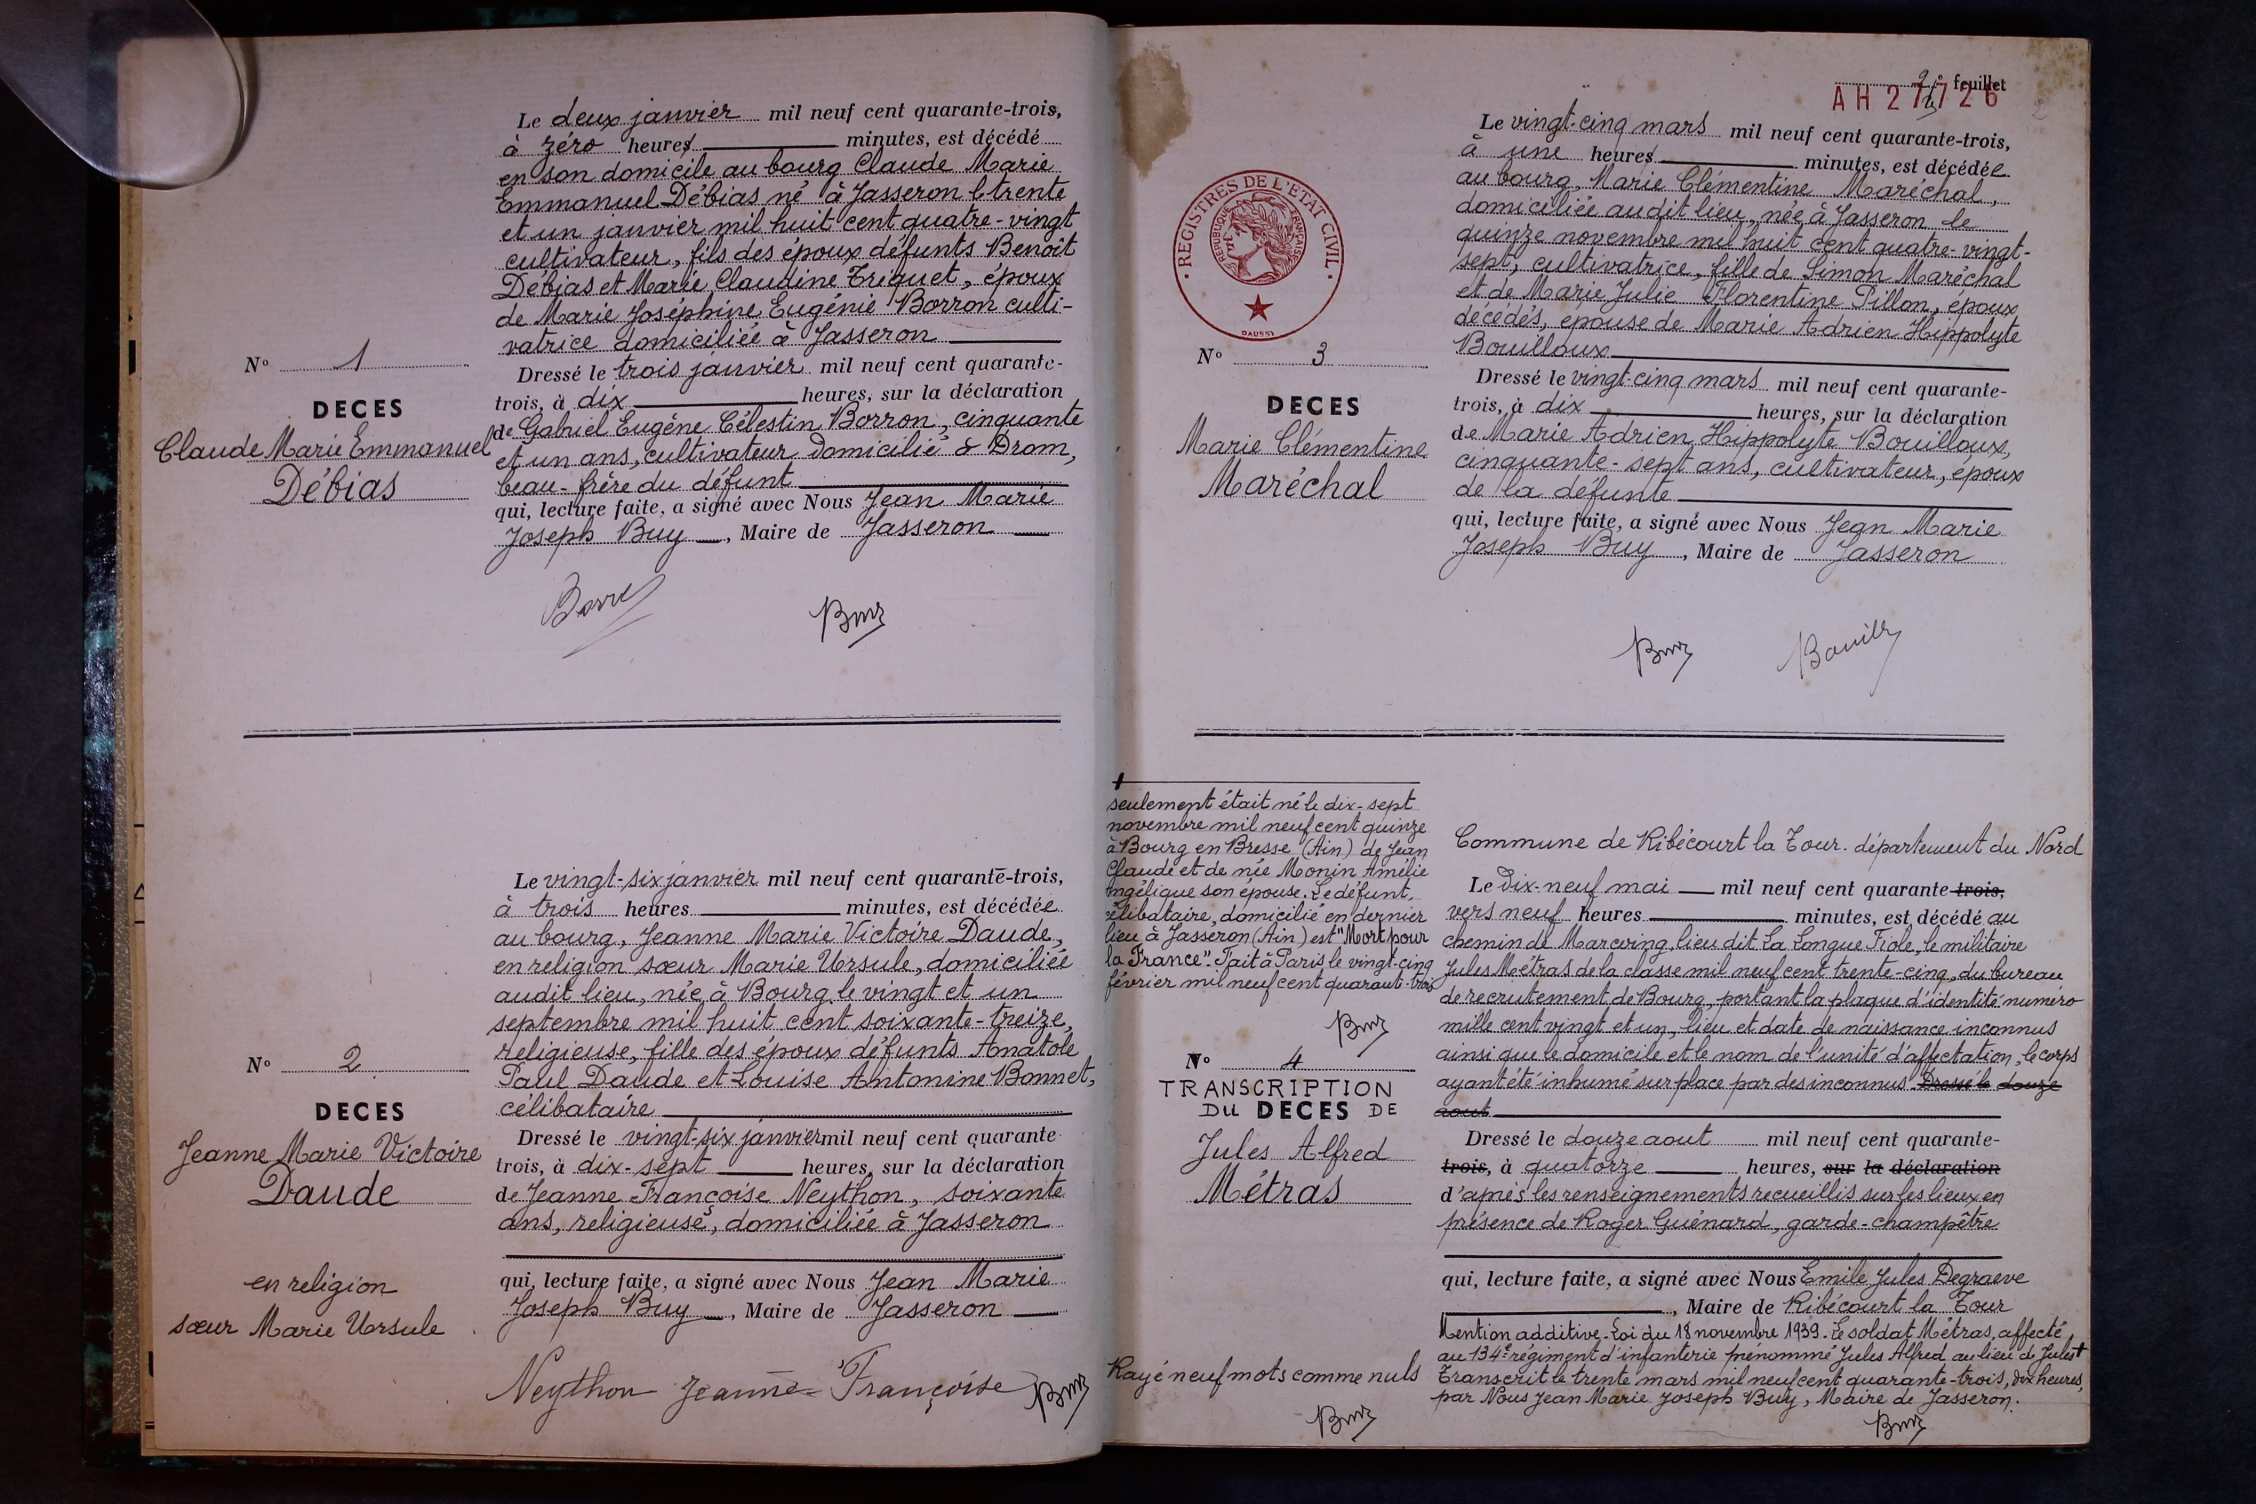 Le deux janvier mil neuf cent quarante-trois,
à zéro heures minutes, est décédé
en son domicile au bourg Claude Marie
Emmanuel Débias né à Jasseron le trente
et un janvier mil huit cent quatre-vingt
cultivateur, fils des époux défunts Benoît
Débias et Marie Claudine Triquet, époux
de Marie Joséphine Eugénie Borron culti-
vatrice domiciliée à Jasseron
Dressé le trois janvier mil neuf cent quarante-
trois, à dix heures, sur la déclaration
de Gabriel Eugène Célestin Borron, cinquante
et un ans, cultivateur domicilié à Drom,
beau-frère du défunt
qui, lecture faite, a signé avec Nous Jean Marie
Joseph Buy, Maire de Jasseron
No 1
DECES
Claude Marie Emmanuel
Débias
Le vingt-six janvier mil neuf cent quarante-trois,
à trois heures minutes, est décédée
au bourg, Jeanne Marie Victoire Daude,
en religion sœur Marie Ursule, domiciliée
audit lieu, née à Bourg le vingt et un
septembre mil huit cent soixante-treize,
religieuse, fille des époux défunts Anatole
Paul Daude et Louise Antonine Bonnet,
célibataire
Dressé le vingt-six janvier mil neuf cent quarante
trois, à dix-sept heures, sur la déclaration
de Jeanne Françoise Neython, soixante
ans, religieuse, domiciliée à Jasseron
qui, lecture faite, a signé avec Nous Jean Marie
Joseph Buy, Maire de Jasseron
Neython Jeanne-Françoise
No 2
DECES
Jeanne Marie Victoire
Daude
en religion
sœur Marie Ursule
2e feuillet
AH 27726
2
REGISTRES DE L'ETAT CIVIL
REPUBLIQUE FRANÇAISE
DAUSSY
Le vingt-cinq mars mil neuf cent quarante-trois,
à une heures minutes, est décédée
au bourg, Marie Clémentine Maréchal,
domiciliée audit lieu, née à Jasseron le
quinze novembre mil huit cent quatre-vingt-
sept, cultivatrice, fille de Simon Maréchal
et de Marie Julie Florentine Pillon, époux
décédés, épouse de Marie Adrien Hippolyte
Bouilloux
Dressé le vingt-cinq mars mil neuf cent quarante-
trois, à dix heures, sur la déclaration
de Marie Adrien Hippolyte Bouilloux,
cinquante-sept ans, cultivateur, époux
de la défunte
qui, lecture faite, a signé avec Nous Jean Marie
Joseph Buy, Maire de Jasseron
No 3
DECES
Marie Clémentine
Maréchal
seulement était né le dix-sept
novembre mil neuf cent quinze
à Bourg en Bresse (Ain) de Jean
Claude et de née Monin Amélie
Angélique son épouse. Le défunt,
célibataire, domicilié en dernier
lieu à Jasseron (Ain) est "Mort pour
la France". Fait à Paris le vingt-cinq
février mil neuf cent quarante-trois
No 4
TRANSCRIPTION
DU DECES DE
Jules Alfred
Métras
Rayé neuf mots comme nuls
Commune de Ribécourt la Tour. département du Nord
Le Dix-neuf mai mil neuf cent quarante-trois,
vers neuf heures minutes, est décédé au
chemin de Marcoing lieu dit La Longue Fiole, le militaire
Jules Métras de la classe mil neuf cent trente-cinq, du bureau
de recrutement de Bourg, portant la plaque d'identité numéro
mille cent vingt et un, lieu et date de naissance inconnus
ainsi que le domicile et le nom de l'unité d'affectation, le corps
ayant été inhumé sur place par des inconnus. Dressé le douze
aout
Dressé le douze aout mil neuf cent quarante-
trois, à quatorze heures, sur la déclaration
d'après les renseignements recueillis sur les lieux en
présence de Roger Guénard, garde-champêtre
qui, lecture faite, a signé avec Nous Emile Jules Degraeve
, Maire de Ribécourt la Tour
Mention additive. Loi du 18 novembre 1939. Le soldat Métras, affecté
au 134e régiment d'infanterie prénommé Jules Alfred au lieu de Jules
Transcrit le trente mars mil neuf cent quarante-trois, dix heures,
par Nous Jean Marie Joseph Buy, Maire de Jasseron.